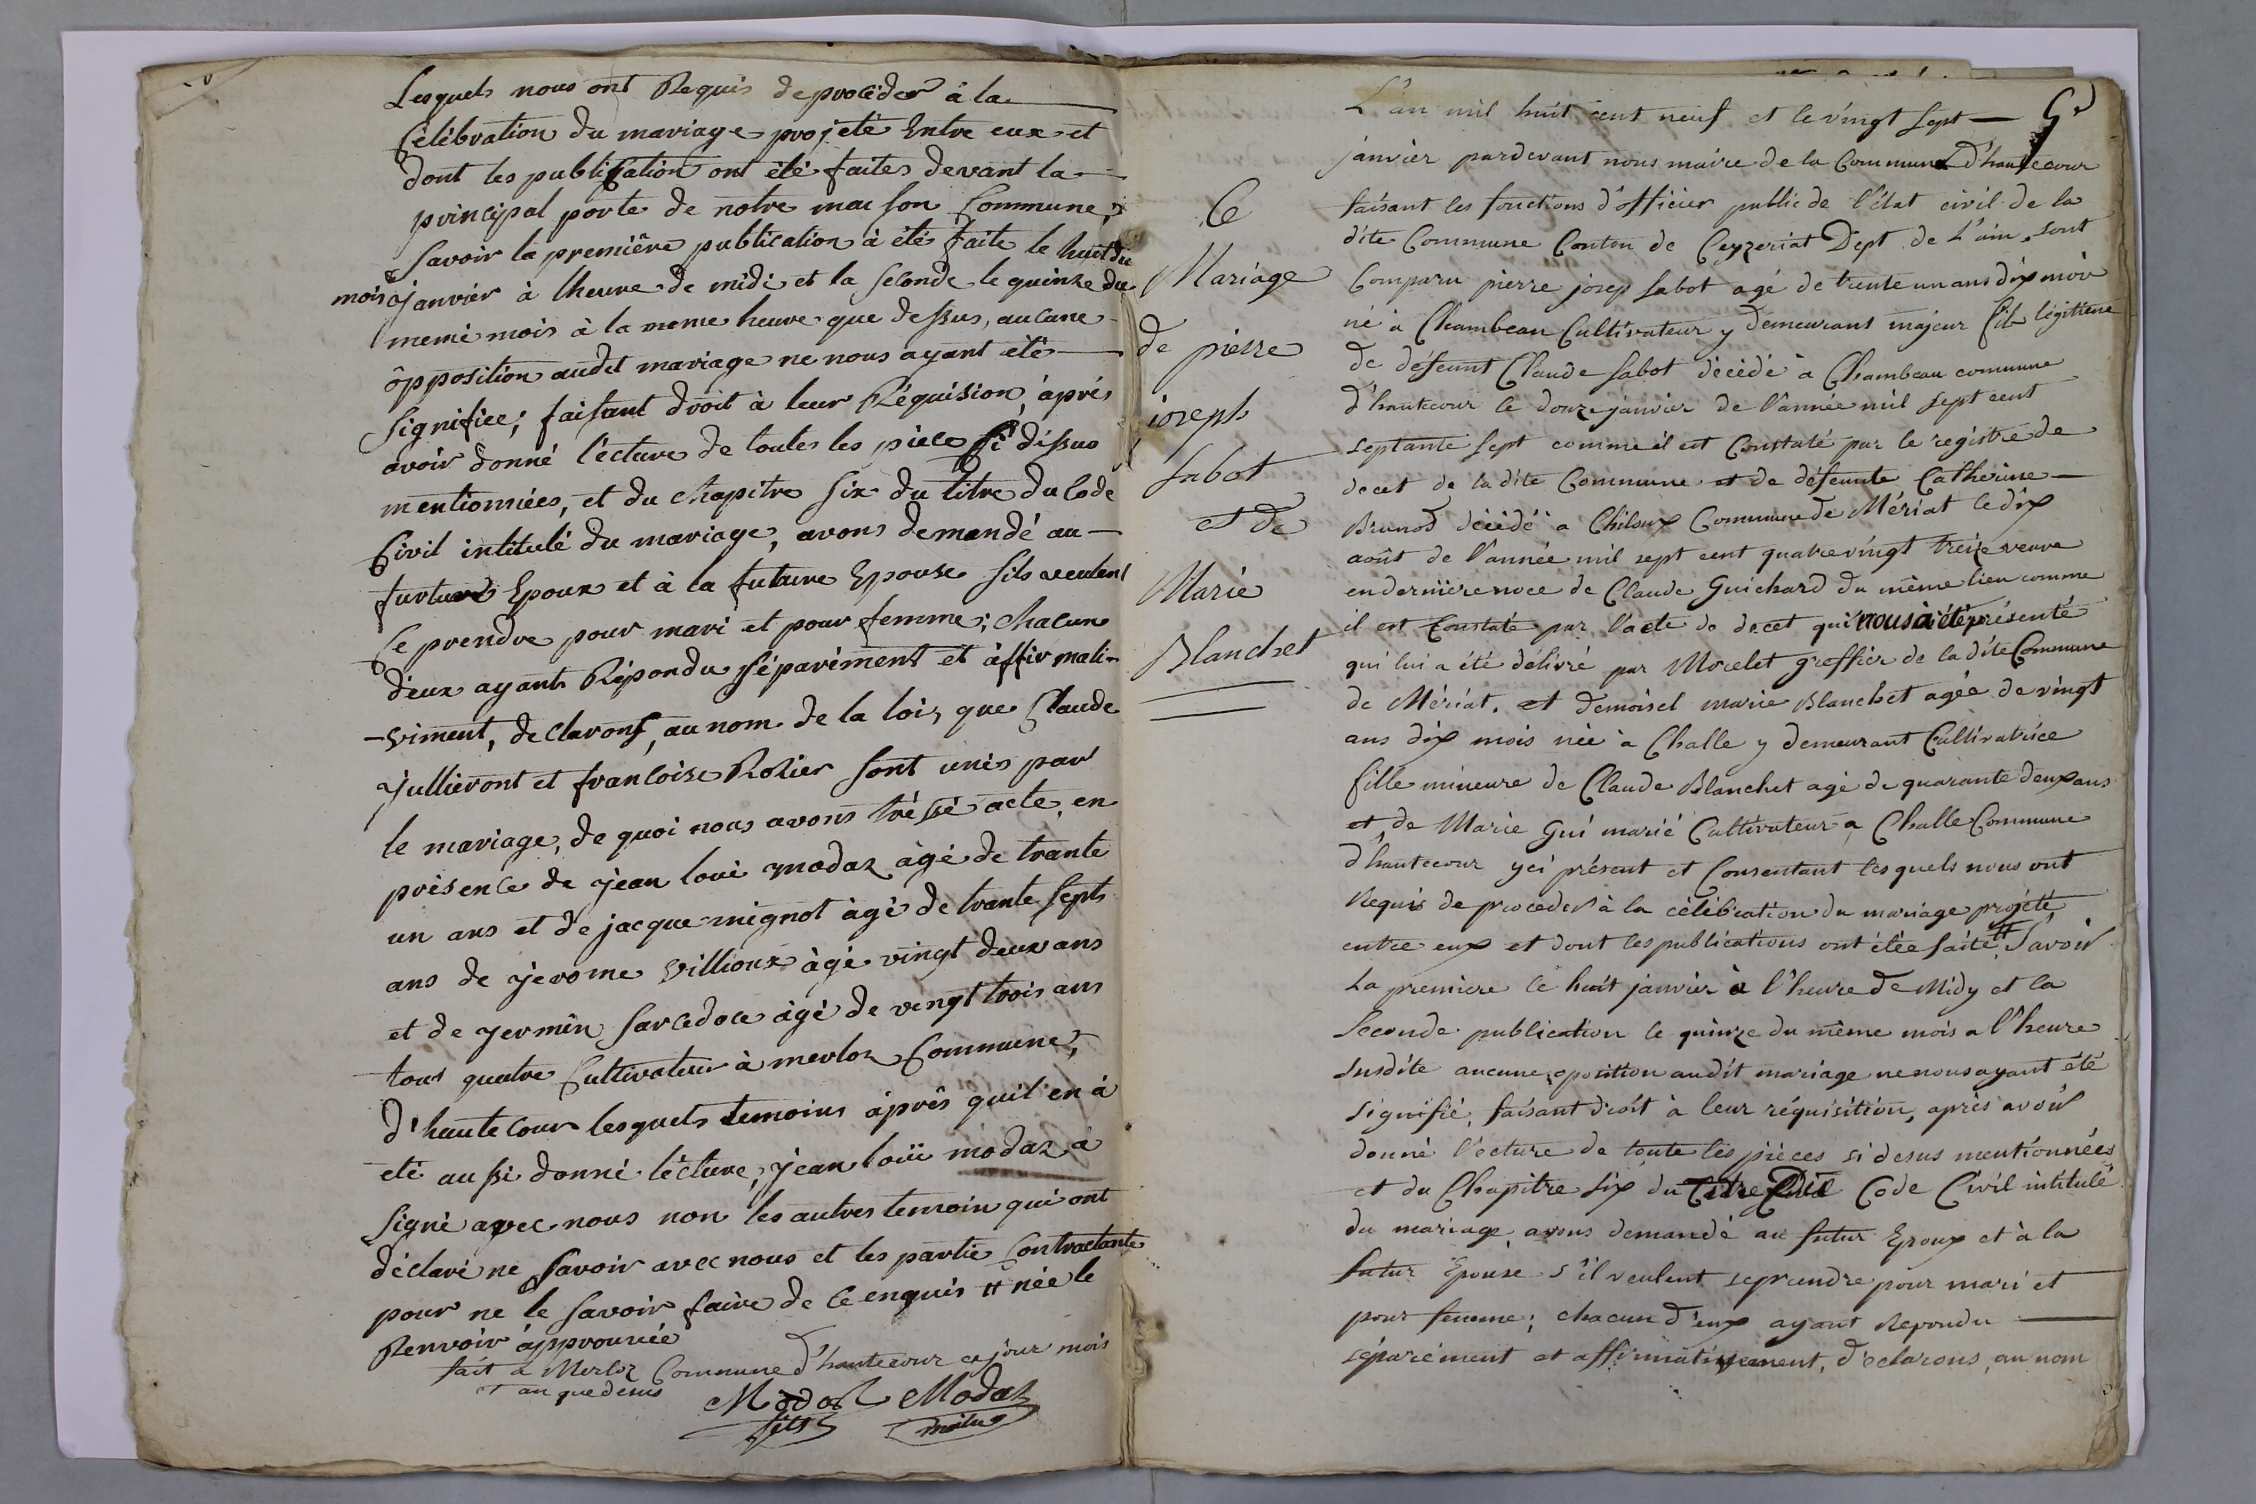 Lesquels nous ont Requis de proceder à la
Célébration du mariage projeté Entre eux et
dont les publication ont été faites devant la
principal porte de notre maison Commune,
Savoir la première publication à été faite le huit du
mois janvier à lheure de midi et la seconde le quinze du
meme mois à la meme heure que dessus, aucune
opposition audit mariage ne nous ayant été
signifiee; faisant droit à leur Réquision, àprés
avoir donné lécture de toutes les pièce si dissus
mentionnées, et du chapitre six du titre du Code
Civil intitulé du mariage, avons demandé au
furture Epoux et à la future Epouse sils veulent
se prendre pour mari et pour femme; chacun
d'eux ayant Répondu séparément et affirmati-
-viment, declarons, au nom de la loi, que Claude
Jullieront et francoise Rozier sont unis par
le mariage, de quoi nous avons tréssé acte en
présence de jean loui modaz àgé de trante
un ans et de jacque mignot àgé de trante sept
ans de jerome villioux àgé vingt deux ans
et de jermin sarcedoce àgé de vingt trois ans
tous quatre Cultivateur à merloz Commune,
d'hautecour lesquels temoins àprês quil en à
eté aussi donné lécture, jean loüi modaz à
signé avec nous non les autres temoin qui ont
déclaré ne savoir avec nous et les partie Contractante
pour ne le savoir faire de ce enquis # née le
Renvoir àpprouvée
fait a Merloz Commune d'hautecour ce jour mois
et an que desus
Modaz Modaz
fils maire
5e
Ce
Mariage
de pierre
joseph
Sabot
et de
Marie
Blanchet
L'an mil huit cent neuf et le vingt sept
janvier pardevant nous maire de la Commune d'hautecour
faisant les fonctions d'officier public de l'état civil de la
dite Commune Conton de Ceyzeriat Dept de L'ain, sont
Comparu pierre josep sabot agé de trente un ans dix mois
né a Chambeau Cultivateur y demeurant majeur fils légitime
de defeunt Claude sabot décédé à Chambeau commune
d'hautecour le douze janvier de l'année mil sept cent
septante sept comme il est Constaté par le registre de
decet de la dite Commune et de défeunte Catherine
Brunod décédé a Chiloux Commune de Mériat le dix
août de l'année mil sept cent quatre vingt treize veuve
en dernière noce de Claude Guichard du même lieu comme
il est Constaté par l'acte de decet qui nous à été présenté
qui lui a été délivré par Morelet greffier de la dite Commune
de Mériat. et demoisel marie Blanchet agée de vingt
ans dix mois née a Challe y demeurant Cultivatrice
fille mineure de Claude Blanchet agé de quarante deux ans
et de Marie Gui marié Cultivateur a Challe Commune
d'hautecour yci présent et Consentant lesquels nous ont
Requis de proceder à la célébration du mariage projété
entre eux et dont les publications ont étée faite # Savoir
La premiere le huit janvier à l'heure de Midy et la
seconde publication le quinze du même mois a l'heure
susdite aucune oposition audit mariage ne nous ayant été
signifié, faisant droit à leur réquisition, après avoir
donné l'ecture de toute les pièces si desus mentionnées
et du Chapitre six du titre Code Civil intitulé
du mariage avons demandé au futur Epoux et à la
futur Epouse s'il veulent se prendre pour mari et
pour femme; chacun d'eux ayant Repondu
séparément et affirmativement, d'eclarons, au nom